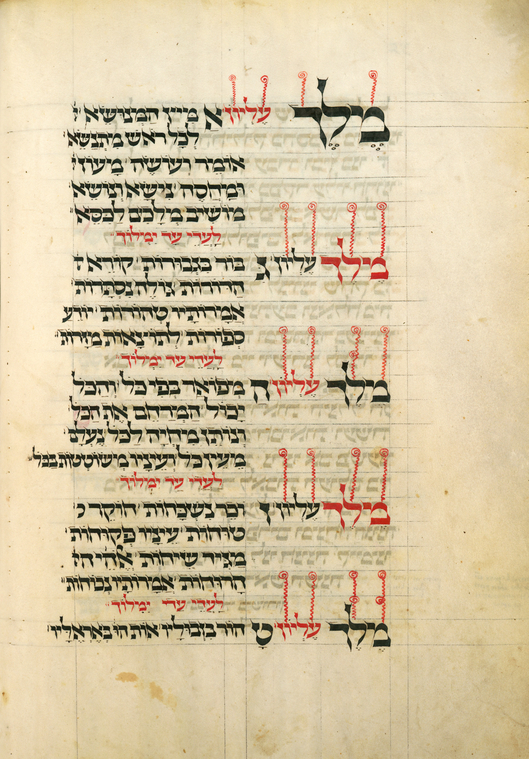 מלך עליון אמיץ המנושא
לכל ראש מתנשא
אומר ועושה מעוז
ומחסה נישא ונושא
מושיב מלכים לכסא
לעדי עד ימלוך
מלך עליון גבור בגבורות קורא ה
הדורות גולה נסתרות
אמרותיו טהורות יודע
ספורות לתוצאות מזרות
לעדי עד ימלוך
מלך עליון המפואר בפי כל והכל
יכול המרחם את הכל
ונותן מחיה לכל נעלם
מעין כל ועיניו משוטטות בכל
לעדי עד ימלוך
מלך עליון זוכר נשכחות חוקר
טוחות עיניו פקוחות
מגיד שיחות אלהי
הרוחות אמרותיו נכוחות
לעדי עד ימלוך
מלך עליון טהור בזבוליו אות הוא באראליו